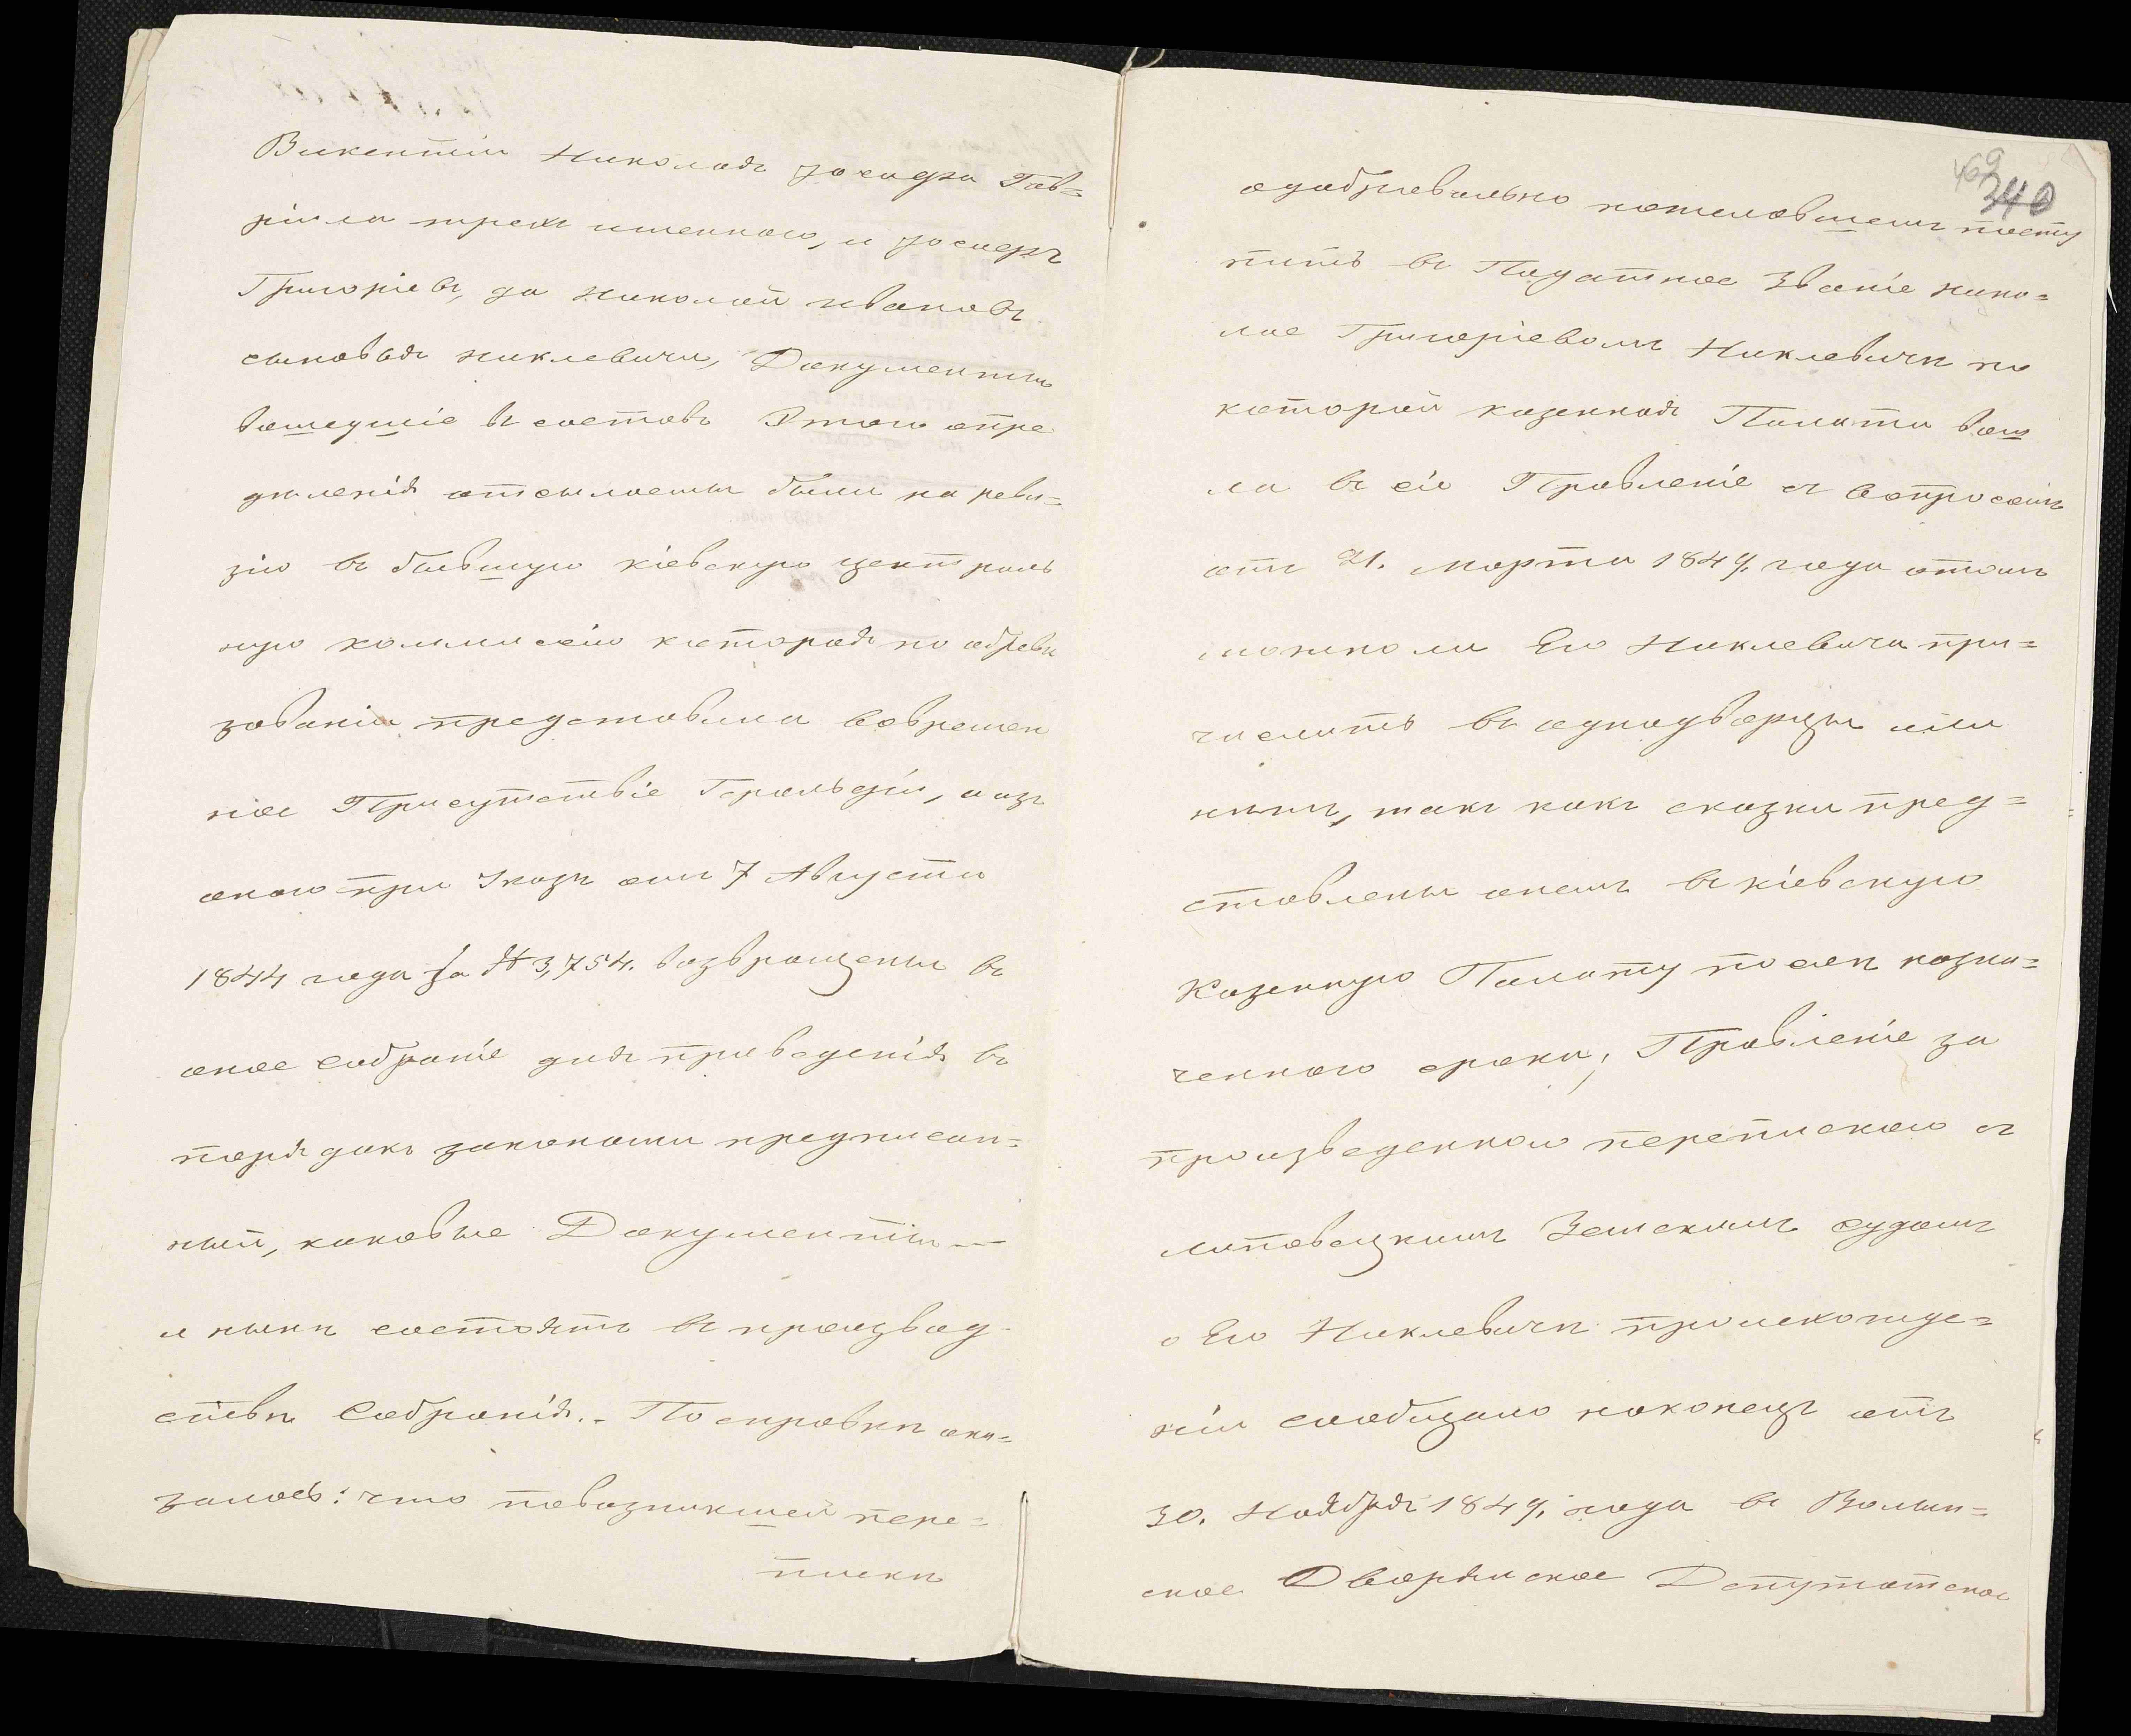 Викентiи Николая Iосифа Гав=
рiила трехъ именнаго, и Iосифъ
Григорiевъ, да Николай Ивановъ
сыновья Никлевичи, Документы
вошедшiе въ составъ Этого опре
дѣленiя отсылаемы были на реви=
зiю въ бывшую кiевскую централь
ную коммисiю которая по обреви
зованiи представила вовремен
ное Присутствiе Герольдiи, а изъ
онаго при Указѣ отъ 7 Августа
1844 года за № 3,754. возвращены въ
оное Собранiе для приведенiя въ
порядокъ законами предписан=
ный, каковые Документы —
и нынѣ состоятъ въ производ
ствѣ Собранiя. - По справкѣ ока=
залось: что повозникшей пере=
пискѣ
340
о добровольно пожелавшемъ посту
пить въ Податное Званiе Нико=
лае Григорiевомъ Никлевичѣ по
которой казенная Палата вош
ла въ сiе Правленiе съ вопросомъ
отъ 21. марта 1847. года отомъ
можноли Его Никлевича при=
числить въ однодворцы или
нѣтъ, такъ какъ сказки пред=
ставлены онемъ въ кiевскую
Казенную Палату послѣ назна=
ченнаго срока; Правленiе за
произведенною перепискою съ
Липовецкимъ Земскимъ судомъ
о Его Никлевича происхожде=
нiи сообщало наконецъ отъ
30. Ноября 1847. года въ Волын=
ское Дворянское Депутатское